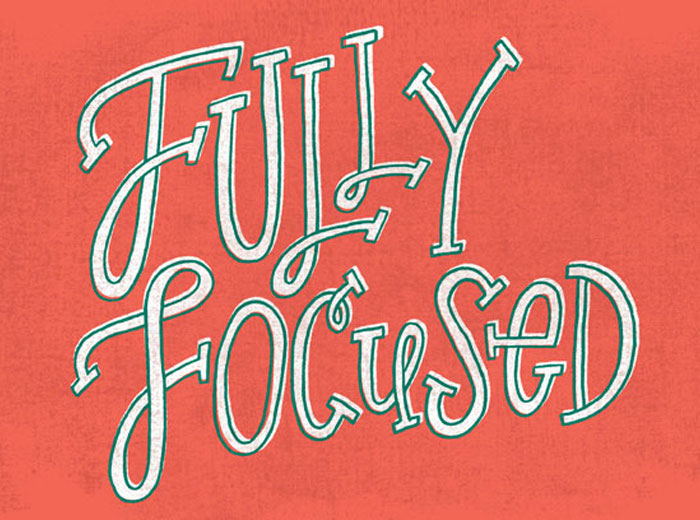 FULLY
FOCUSED